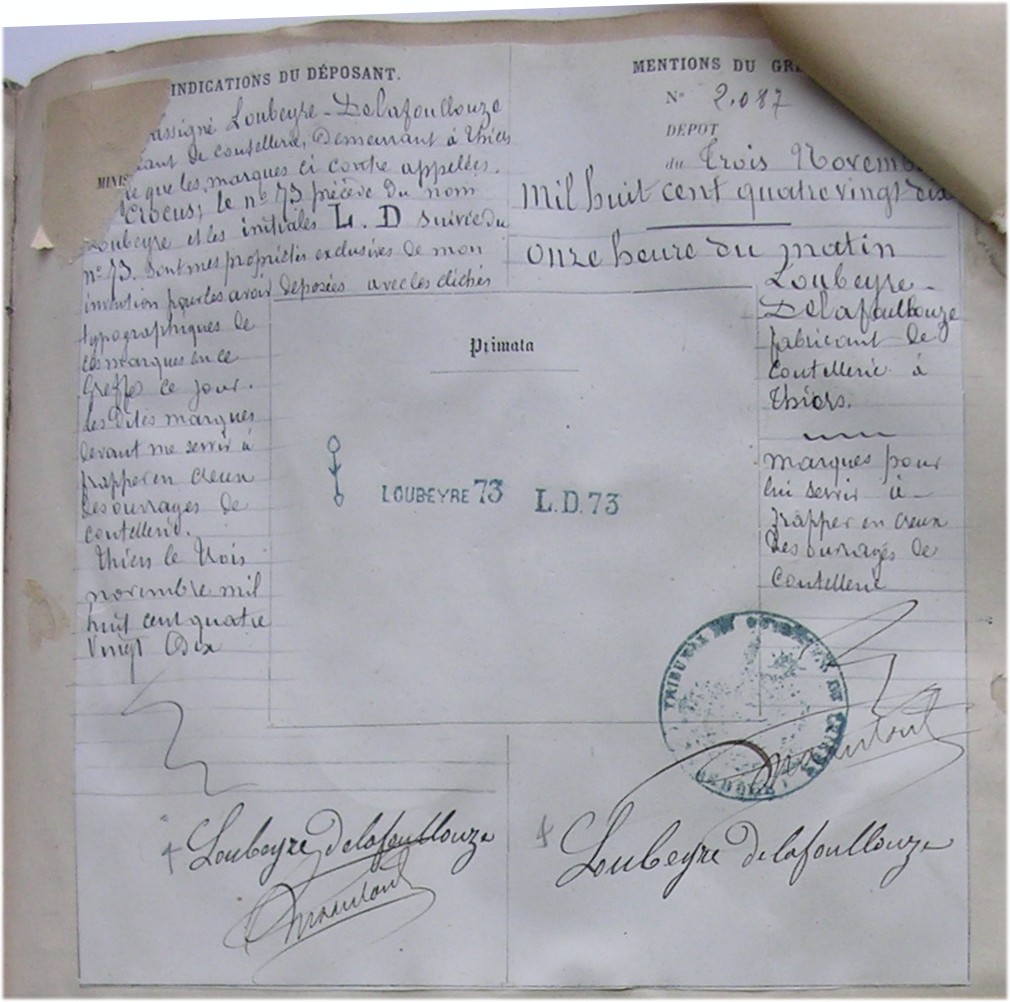 INDICATIONS DU DÉPOSANT.
Loubeyre-Delafoullouze
de coutellerie, Demeurant à Thiers
que les marques ci contre appelées.
Crocus; le nº 73 précédé du nom
Loubeyre et les initiales L. D suivie du
nº 73. sont mes propriétés exclusives de mon
invention pour les avoir deposées avec les clichés
typographiques de
ces marques en ce
Greffe ce jour.
Les dites marques
devant me servir à
frapper en creux
les ouvrages de
coutellerie.
Thiers le trois
novembre mil
huit cent quatre
vingt Dix
MENTIONS DU
Nº 2.087
DÉPOT
du Trois
Mil huit cent quatre vingt dix
onze heure du matin
Loubeyre-
Delafoullouze
fabricant de
Coutellerie à
Thiers.
marques pour
lui servir à
frapper en creux
les ouvrages de
Coutellerie
Primata
LOUBEYRE 73 L.D. 73
TRIBUNAL DE COMMERCE DE THIERS
Loubeyre delafoullouze
Loubeyre delafoullouze